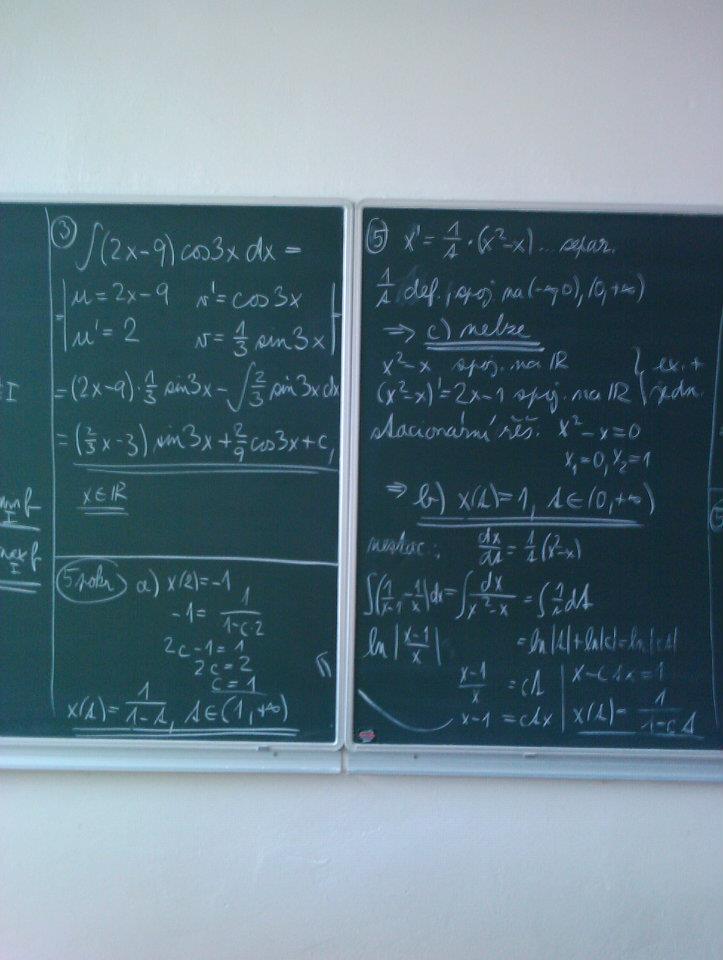 ③ ∫(2x-9) cos3x dx =
= | u = 2x-9 v' = cos3x | =
| u' = 2 v = 1/3 sin3x |
= (2x-9)·1/3 sin3x - ∫ 2/3 sin3x dx
= (2/3 x - 3) sin3x + 2/9 cos3x + c,
x∈ℝ
I
min f
I
max f
I
5 pokr a) x(2) = -1
-1 = 1/(1-c·2)
2c-1 = 1
2c = 2
c = 1
x(t) = 1/(1-t), t∈(1,+∞)
⑤ x' = 1/t · (x²-x) ... separ.
1/t def., spoj. na (-∞,0), (0,+∞)
⇒ c) nelze
x²-x spoj. na ℝ } ex. +
(x²-x)' = 2x-1 spoj. na ℝ } jedn.
stacionární řeš. x²-x = 0
x₁=0, x₂=1
⇒ b) x(t) = 1, t∈(0,+∞)
nestac.: dx/dt = 1/t (x²-x)
∫(1/(x-1) - 1/x) dx = ∫ dx/(x²-x) = ∫ 1/t dt
ln |(x-1)/x| = ln|t| + ln|c| = ln|ct|
(x-1)/x = ct | x - ctx = 1
x-1 = ctx | x(t) = 1/(1-ct)